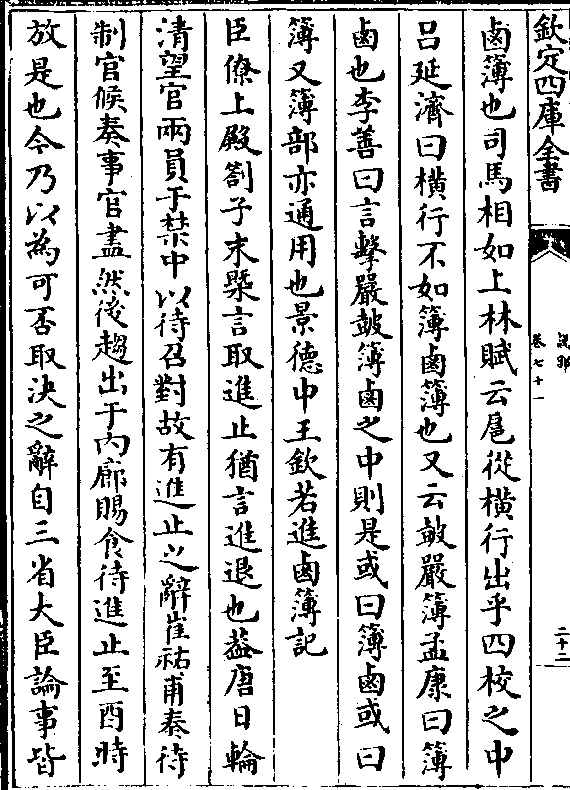 欽定四庫全書
說郛
卷七十一
二十二
鹵簿也司馬相如上林賦云扈從橫行出乎四校之中
呂延濟曰橫行不如簿鹵簿也又云鼓嚴簿孟康曰簿
鹵也李善曰言擊嚴鼓簿鹵之中則是或曰簿鹵或曰
簿又簿部亦通用也景德中王欽若進鹵簿記
臣僚上殿劄子末槩言取進止猶言進退也葢唐日輪
清望官兩員于禁中以待召對故有進止之辭崔祐甫奏待
制官候奏事官盡然後趨出于內廊賜食待進止至酉時
放是也今乃以為可否取決之辭自三省大臣論事皆